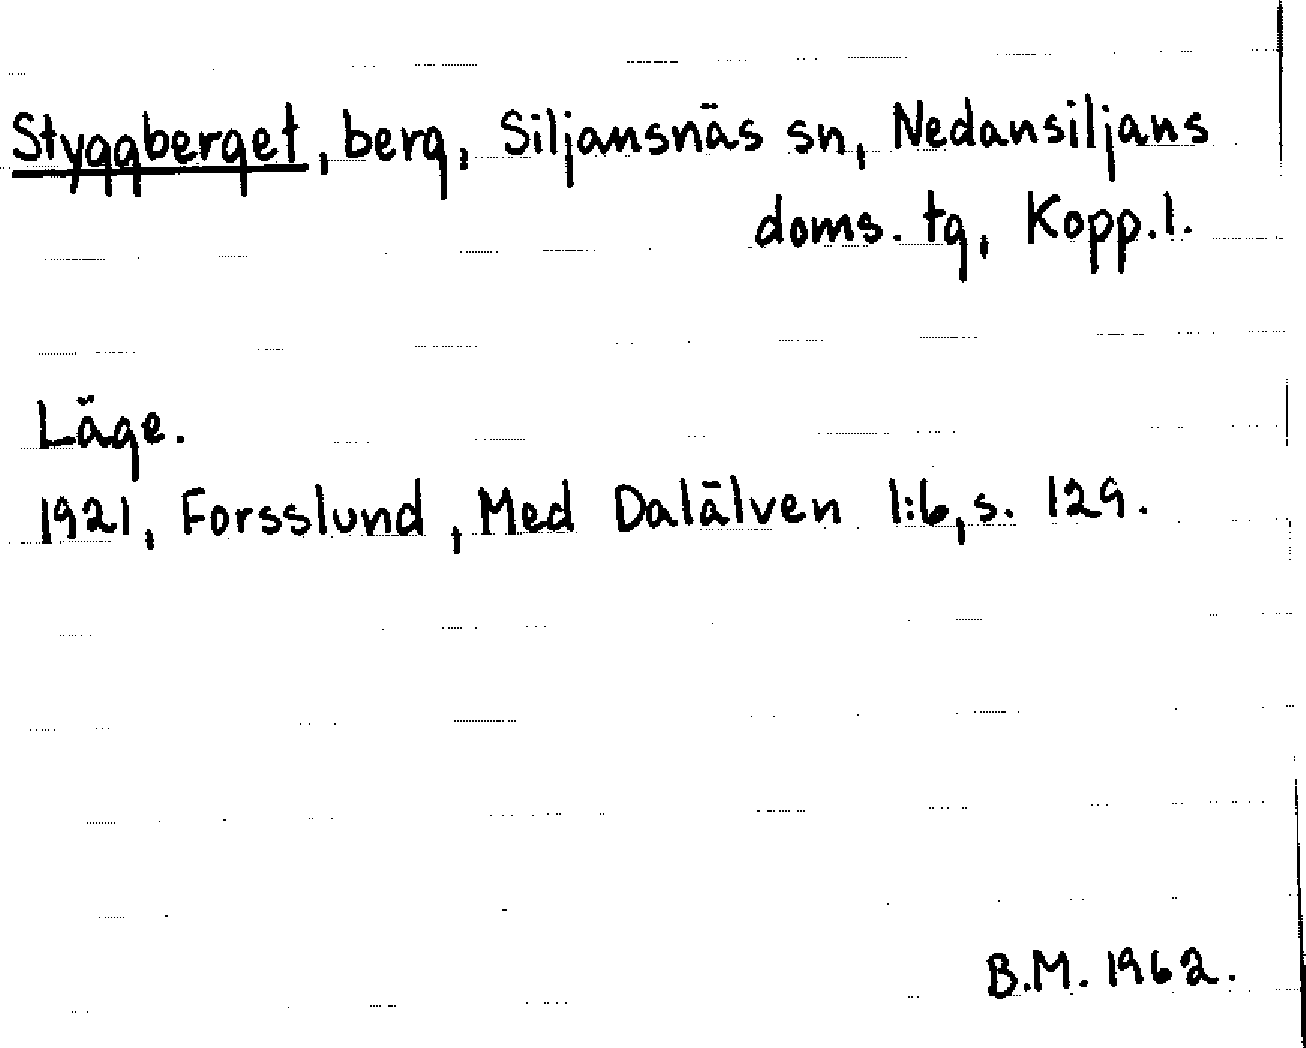 Styggberget, berg, Siljansnäs sn, Nedansiljans
doms. tg, Kopp.l.
Läge.
1921, Forsslund, Med Dalälven 1:6, s. 129.
B.M. 1962.